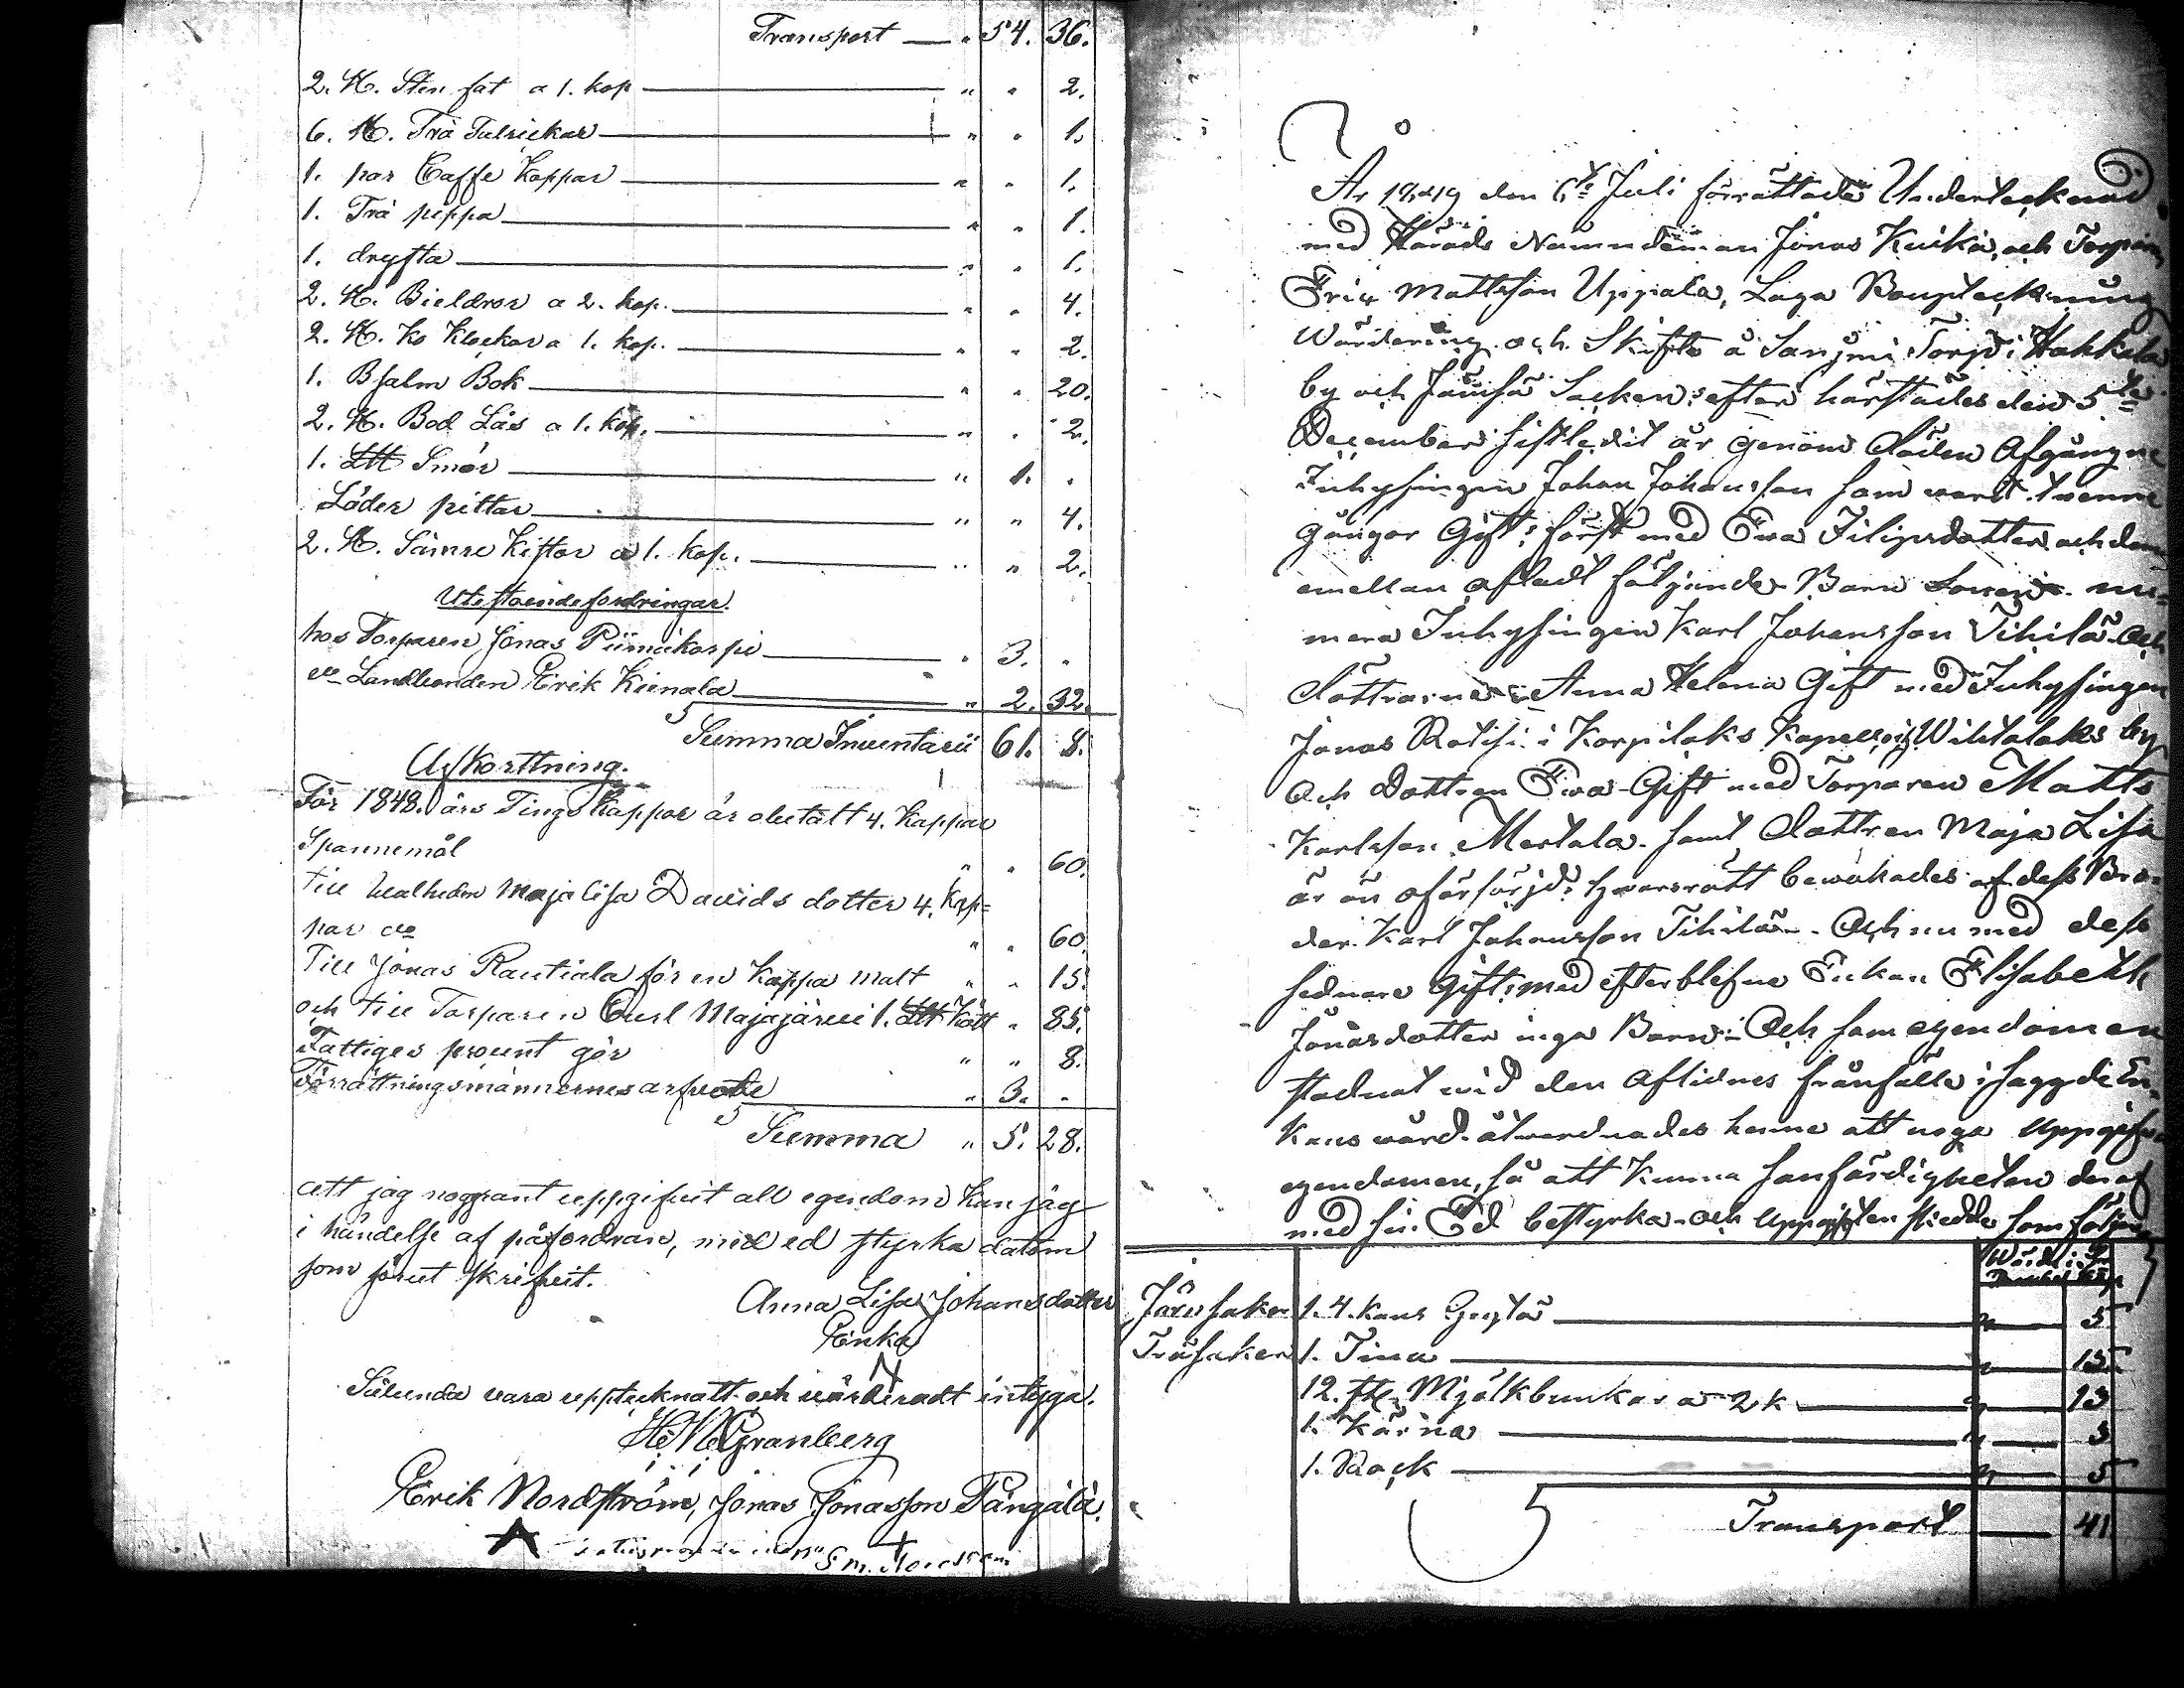 Transport — " 54. 36.
2. st. Sten fat a 1. kop — " " 2.
6. st. Trä Talrickar — " " 1.
1. par Caffe Koppar — " " 1.
1. Trä peppa — " " 1.
1. dryfta — " " 1.
2. st. Bieldror a 2. kop. — " " 4.
2. st. Ko Klockor a 1. kop. — " " 2.
1. Bsalm Bok — " " 20.
2. st. Bod Lås a 1. kop. — " " 2.
1. Smör — " 1. "
Läder pittar — " " 4.
2. st. Sämre Kistor a 1. kop. — " " 2.
Utestående fordringar.
hos Torparen Jonas Piimäkorpi — " 3. "
Landbonden Erik Kienala — " 2. 32.
Summa Inventarii 61. 8.
Afkorttning.
För 1848. års Tings Kappor är obetalt 4. Kappar
Spannemål " " 60.
till Maja Lisa Davids dotter 4. Kap=
par " " 60.
Till Jonas Rautiala för en Kappa malt " " 15.
och till Torparen Carl Majajärvi 1. Kött " 85.
Fattiges procent gör " " 8.
Förrättningsmännernes arfvode " 3. "
Summa " 5. 28.
att jag noggrant uppgifvit all egendom kan jag
i händelse af påfordran, med ed styrka datum
som förut skrifvit.
Anna Lisa Johansdotter
Enka
Sålunda vara upptecknatt och värderadt intyga.
Granberg
Erik Nordström, Jonas Jonasson Pängälä.
År 1849 den 6te Juli förrättade Undertecknad
med Härads Nämndeman Jonas Kuikka, och Torparen
Eric Mattsson Uppala, Laga Boupteckning
Wärdering och Skifte å Torp i Hakkila
by och Jämsä Socken; efter härstädes den 5te
December sistledit år genom Döden Afgångne
Inhysingen Johan Johansson som warit twenne
gångor Gift; först med Ewa Filipsdotter och dem
emellan afladt följande Barn Sonen nu=
mera Inhysingen Karl Johansson Tihilä Och
Döttrarne Anna Helena Gift med Inhysingen
Jonas i Korpilaks Kapell by
Och Dottren Ewa Gift med Torparen Matts
Karlsson Mertala. samt Dottren Maja Lisa
är än oförsörjd; hwarsrätt bewakades af dess Bro=
der Karl Johansson Tihilä. Och nu med dess
sednare Gift; med efterblefne Enkan Elisabeth
Jonasdotter inga Barn. Och som egendomen
stadnat wid den Aflidnes frånfälle i sagde En=
kans wård. åtwarnades henne att noga uppgifwa
egendomen, så att kunna sanfärdigheten deraf
med sin Ed bestyrka och uppgiften skedde som följer
Järnsaker 1. 4. kans Gryta — " 5
Träsaker 1. Tina — " 13
12. st. Mjölkbunkar a 2 k — " 13
1. Kärna — " 5
1. Rock — " 5
Transport — 41